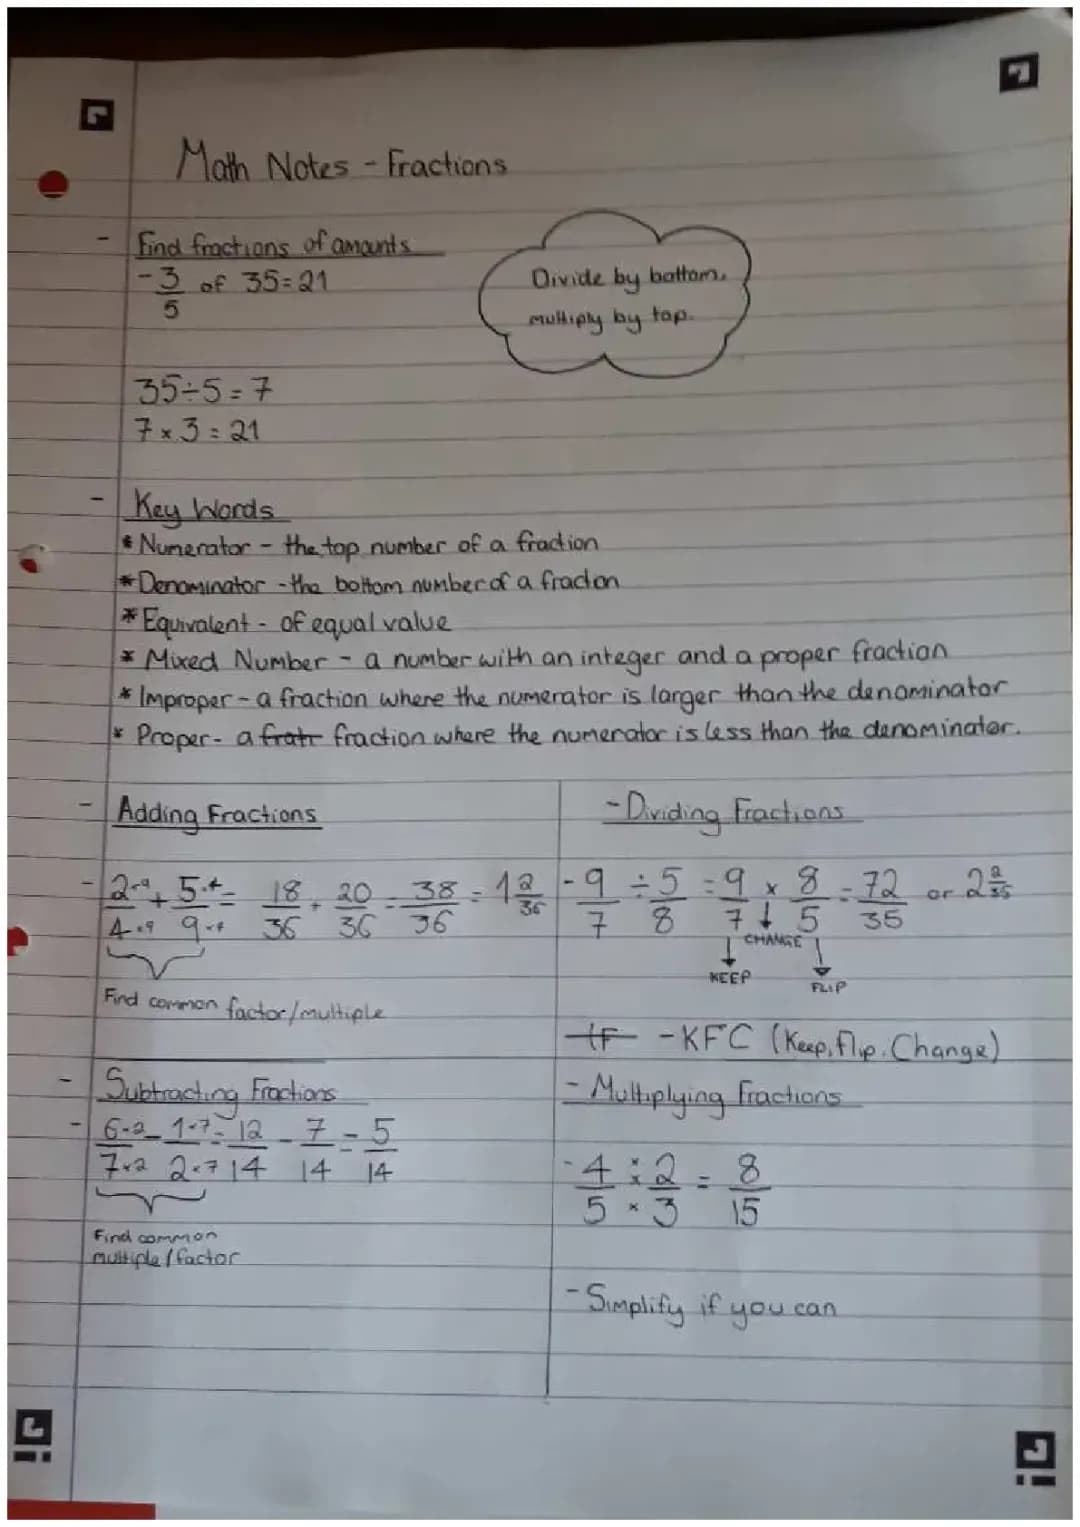 Math Notes - Fractions
- Find fractions of amounts
- 3/5 of 35=21
Divide by bottom,
multiply by top.
35÷5=7
7×3=21
- Key Words
* Numerator - the top number of a fraction
* Denominator - the bottom number of a fracion
* Equivalent - of equal value
* Mixed Number - a number with an integer and a proper fraction
* Improper - a fraction where the numerator is larger than the denominator
* Proper - a fratr fraction where the numerator is less than the denominator.
- Adding Fractions
- 2×9/4×9 + 5×4/9×4 = 18/36 + 20/36 = 38/36 = 1 2/36
Find common factor/multiple
- Subtracting Fractions
- 6×2/7×2 - 1×7/2×7 = 12/14 - 7/14 = 5/14
Find common
multiple/factor
- Dividing Fractions
- 9/7 ÷ 5/8 = 9/7 × 8/5 = 72/35 or 2 2/35
CHANGE
KEEP
FLIP
- KFC (Keep, Flip, Change)
- Multiplying Fractions
- 4/5 × 2/3 = 8/15
- Simplify if you can